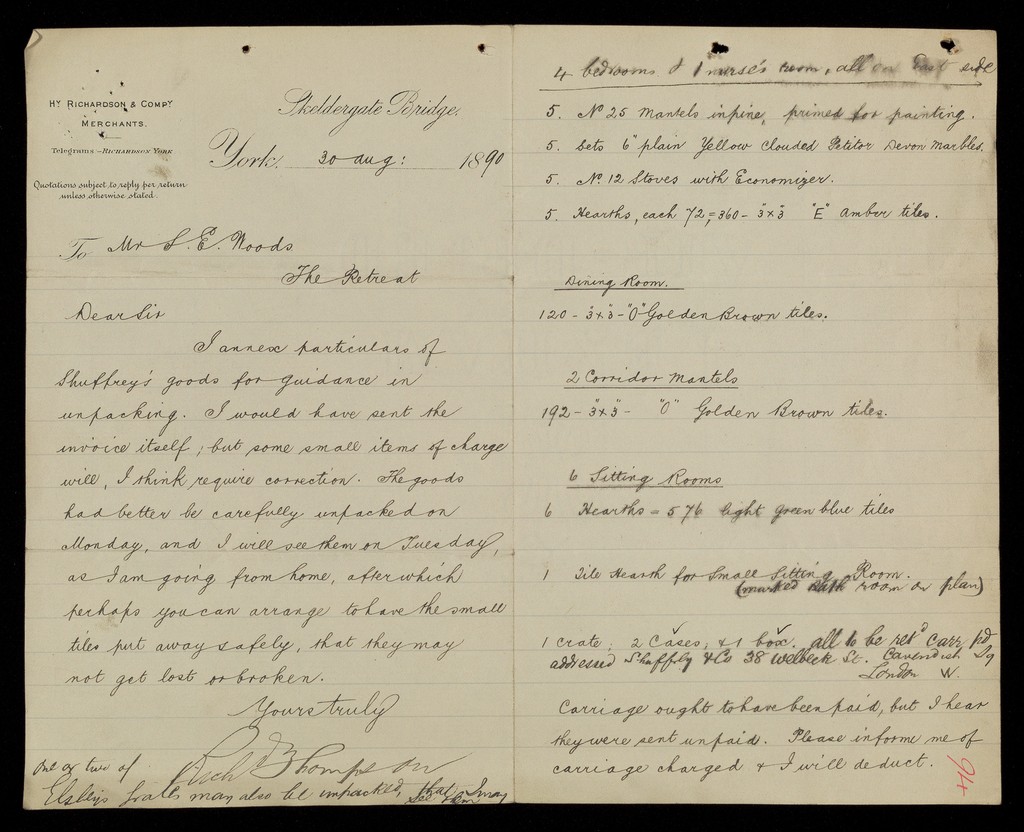 Hy. Richardson & Compy.
Merchants.
Telegrams - Richardson York
Quotations subject to reply per return
unless otherwise stated.
Skeldergate Bridge.
York. 30 Aug: 1890
To Mr S. E. Woods
The Retreat
Dear Sir
I annex particulars of
Shuffrey's goods for guidance in
unpacking. I would have sent the
invoice itself; but some small items of charge
will, I think require correction. The goods
had better be carefully unpacked on
Monday, and I will see them on Tuesday,
as I am going from home, after which
perhaps you can arrange to have the small
tiles put away safely, that they may
not get lost or broken.
Yours truly
Richd Thompson
One or two of
Elsley's grates may also be unpacked, that I may
see them
4 bedrooms & 1 nurse's room, all on East side
5. No 25 Mantels in pine, primed for painting.
5. Sets 6" plain Yellow Clouded Petitor Devon Marbles.
5. No. 12 Stoves with Economizer.
5. Hearths, each 72, = 360 - 3" x 3" "E" Amber tiles.
Dining Room.
120 - 3" x 3" - "O" Golden Brown tiles.
2 Corridor Mantels
192 - 3" x 3" - "O" Golden Brown tiles.
6 Sitting Rooms
6 Hearths = 576 light green blue tiles
1 Tile Hearth for Small Sitting Room.
(marked Bath room on plan)
1 Crate; 2 Cases, & 1 box. all to be retd Carr. pd
addressed Shuffrey & Co 38 Welbeck St. Cavendish Sq
London W.
Carriage ought to have been paid, but I hear
they were sent unpaid. Please inform me of
carriage charged & I will deduct.
94